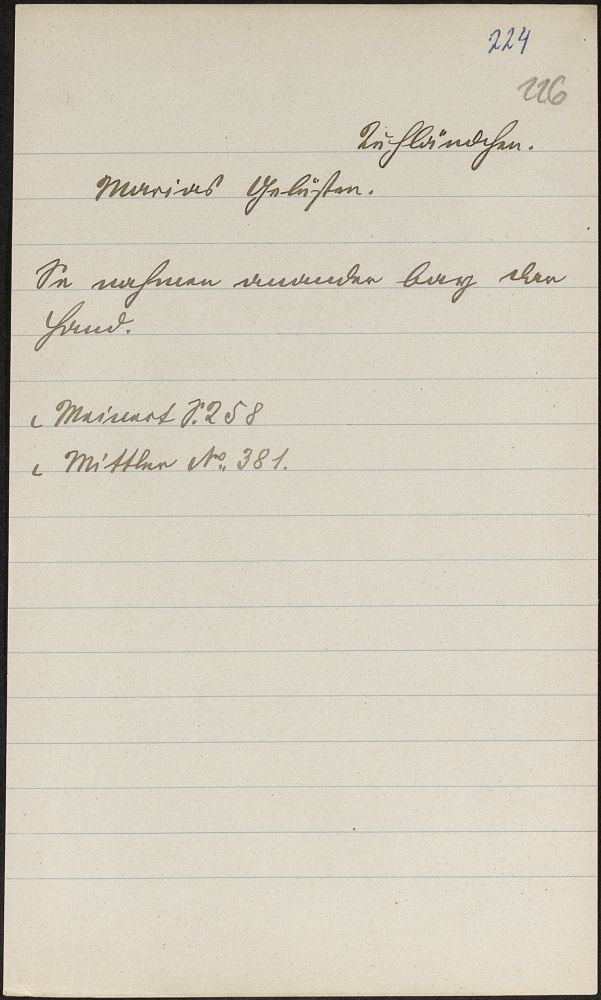 224
226
Kuhländchen.
Marias Gelüsten.
Se nahmen anander bay der
Hand.
Meinert S. 258
Mittler No. 381.